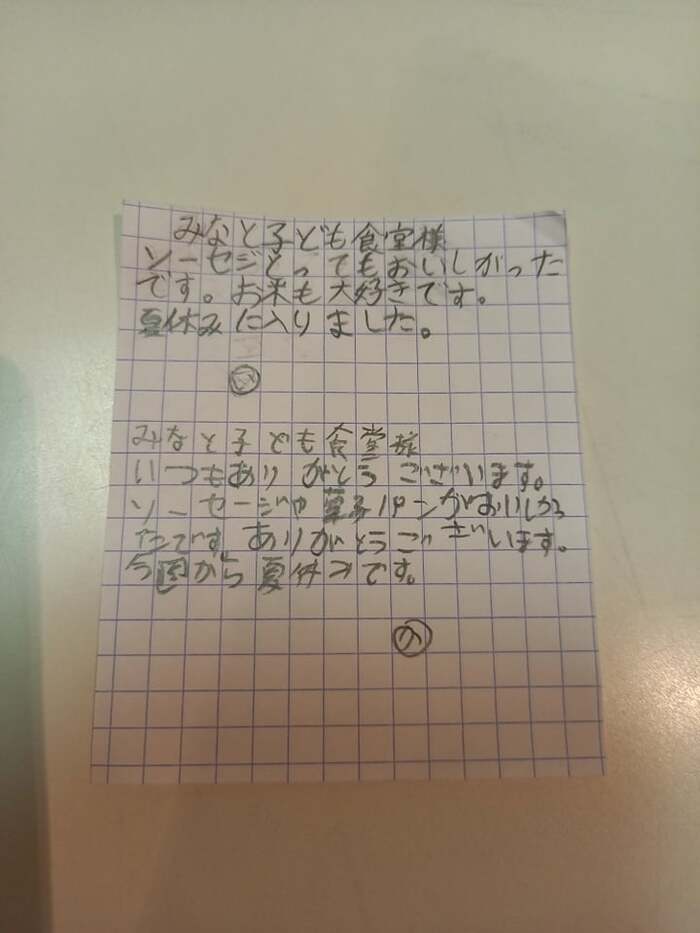 みなと子ども食堂様
ソーセジとってもおいしかった
です。お米も大好きです。
夏休みに入りました。
みなと子ども食堂様
いつもありがとうございます。
ソーセージや菓子パンがおいしかっ
たです ありがとうございます。
今週から夏休みです。
の